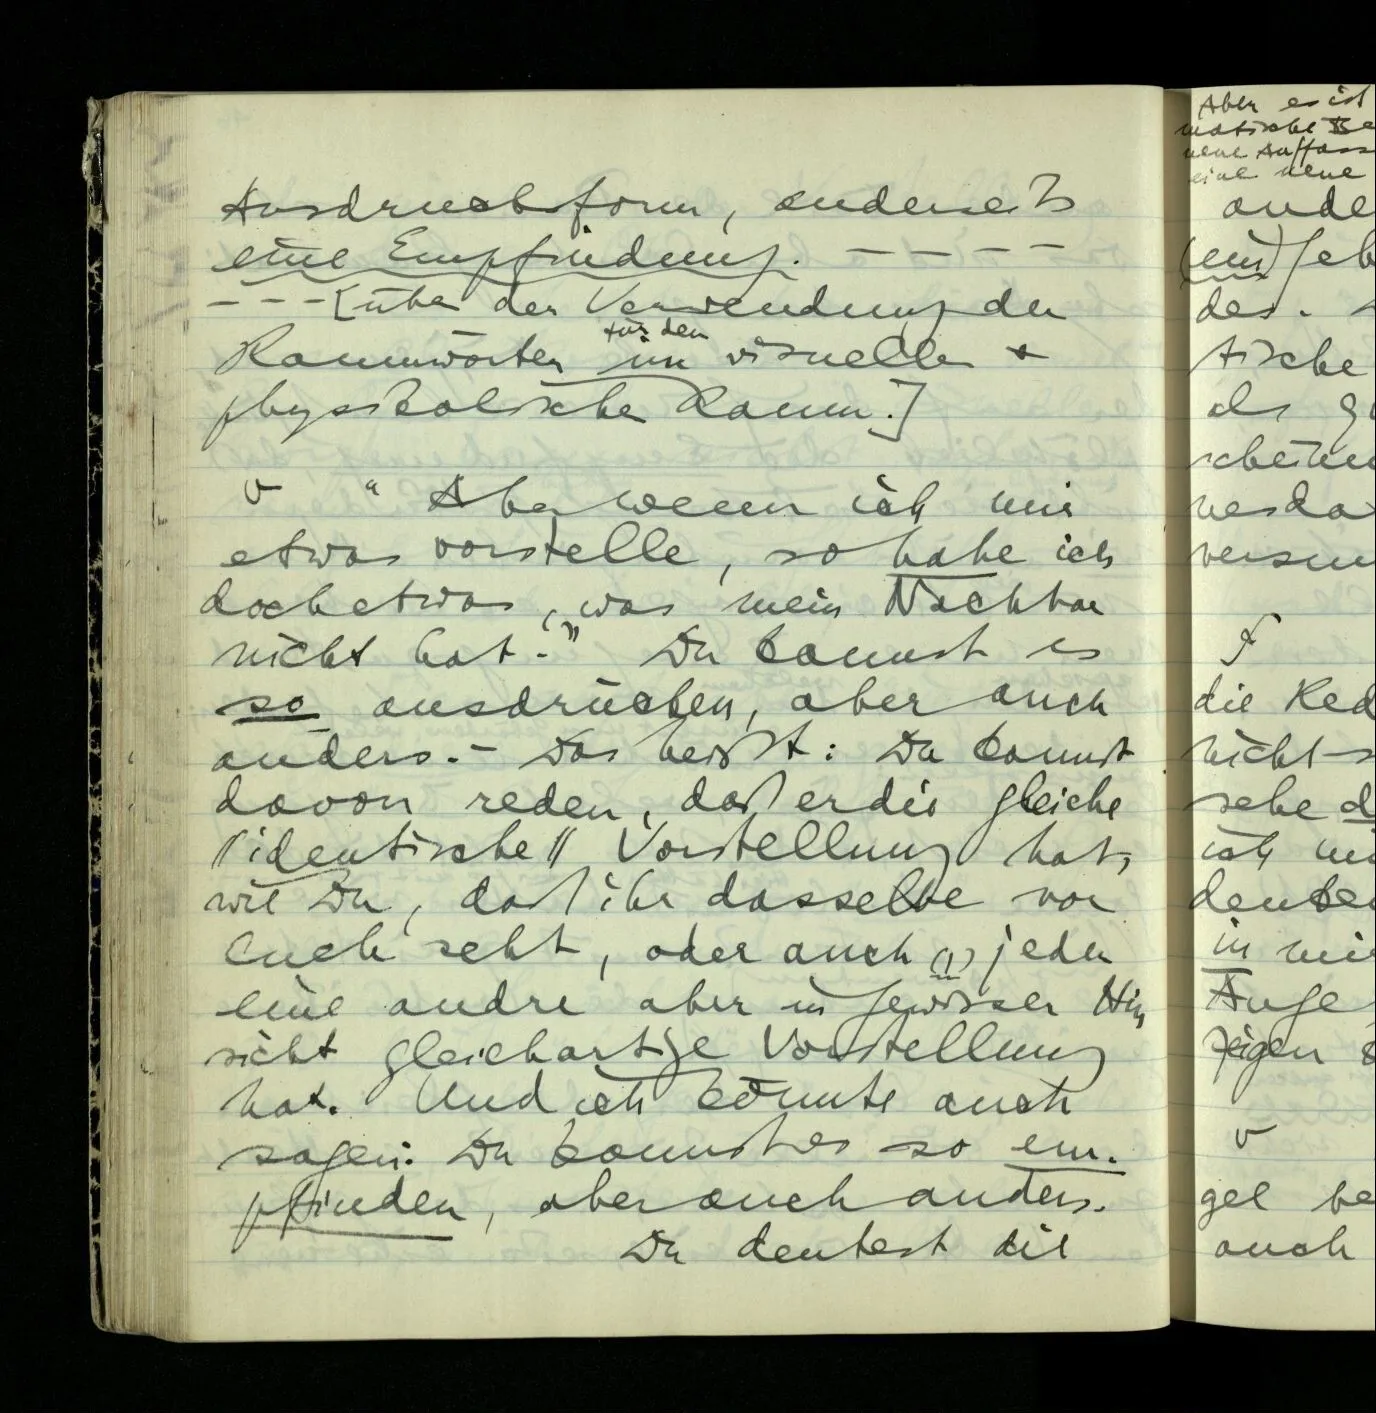 Ausdrucksform, anderseits
eine Empfindung. – – – –
– – – [über der Verwendung der
für den
Raumwörter im visuelle +
physikalische Raum.]
v " Aber wenn ich mir
etwas vorstelle, so habe ich
doch etwas, was mein Nachbar
nicht hat." Du kannst es
so ausdrücken, aber auch
anders. – Das heißt: Du kannst
davon reden, daß er die gleiche
"identische" Vorstellung hat,
wie Du, daß ihr dasselbe vor
Euch seht, oder auch jeder
eine andre aber in gewisser Hin
sicht gleichartige Vorstellung
hat. Und ich könnte auch
sagen: Du kannst es so em-
pfinden, aber auch anders.
Du deutest die
Aber es ist
matische Be
neue Auffass
eine neue
ande
(ein) Geb
des.
tische
als
scheinu
wesda
versu
F
die Red
nicht s
sehe d
ich mi
denken
in mir
Auge
zeigen
v
gel be
auch